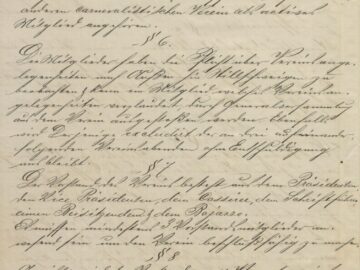 anderen cameralistischen Verein als actives
Mitglied angehören.
§ 6.
Die Mitglieder haben die Pflicht über Vereinsange-
legenheiten nach Außen hin Stillschweigen zu
beobachten; kann ein Mitglied welches Vereinsan-
gelegenheiten verplaudert, durch Generalversammlung
aus dem Verein ausgestoßen werden. Ebenfalls
wird Derjenige excludirt der an drei aufeinander-
folgenden Vereinsabenden ohne Entschuldigung
ausbleibt.
§ 7
Der Vorstand des Vereins besteht aus dem Präsidenten
dem Vice Präsidenten, dem Cassirer, dem Schriftführer
einem Beisitzenden & dem Bajazzo.
Es müssen mindestens 3 Vorstandsmitglieder an-
wesend sein um den Verein beschlußfähig zu machen
§ 8